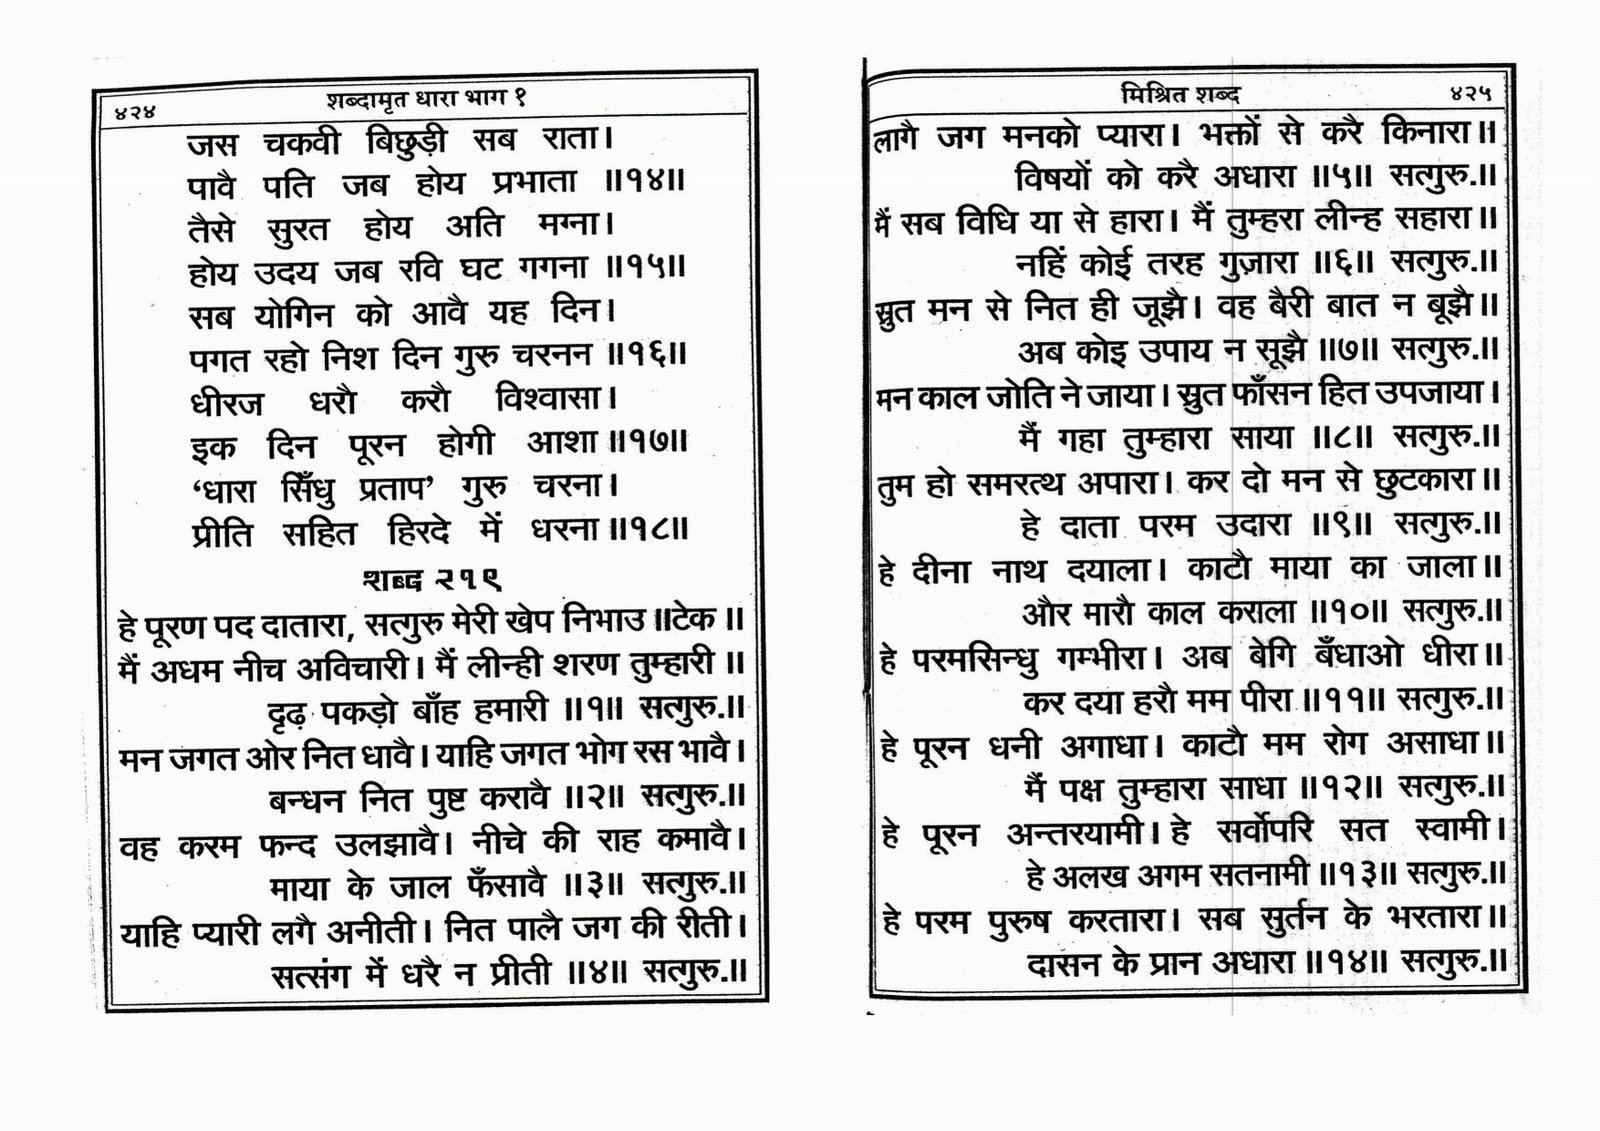 ४२४ शब्दामृत धारा भाग १
जस चकवी बिछुड़ी सब राता।
पावै पति जब होय प्रभाता ॥१४॥
तैसे सुरत होय अति मग्ना।
होय उदय जब रवि घट गगना ॥१५॥
सब योगिन को आवै यह दिन।
पगत रहो निश दिन गुरु चरनन ॥१६॥
धीरज धरौ करौ विश्वासा।
इक दिन पूरन होगी आशा ॥१७॥
‘धारा सिँधु प्रताप’ गुरु चरना।
प्रीति सहित हिरदे में धरना ॥१८॥
शब्द २१९
हे पूरण पद दातारा, सत्गुरु मेरी खेप निभाउ ॥टेक॥
मैं अधम नीच अविचारी। मैं लीन्ही शरण तुम्हारी ॥
दृढ़ पकड़ो बाँह हमारी ॥१॥ सत्गुरु.॥
मन जगत ओर नित धावै। याहि जगत भोग रस भावै।
बन्धन नित पुष्ट करावै ॥२॥ सत्गुरु.॥
वह करम फन्द उलझावै। नीचे की राह कमावै।
माया के जाल फँसावै ॥३॥ सत्गुरु.॥
याहि प्यारी लगै अनीती। नित पालै जग की रीती।
सत्संग में धरै न प्रीती ॥४॥ सत्गुरु.॥
मिश्रित शब्द ४२५
लागै जग मनको प्यारा। भक्तों से करै किनारा॥
विषयों को करै अधारा ॥५॥ सत्गुरु.॥
मैं सब विधि या से हारा। मैं तुम्हरा लीन्ह सहारा॥
नहिं कोई तरह गुज़ारा ॥६॥ सत्गुरु.॥
स्रुत मन से नित ही जूझै। वह बैरी बात न बूझै॥
अब कोइ उपाय न सूझै ॥७॥ सत्गुरु.॥
मन काल जोति ने जाया। स्रुत फाँसन हित उपजाया।
मैं गहा तुम्हारा साया ॥८॥ सत्गुरु.॥
तुम हो समरत्थ अपारा। कर दो मन से छुटकारा॥
हे दाता परम उदारा ॥९॥ सत्गुरु.॥
हे दीना नाथ दयाला। काटौ माया का जाला॥
और मारौ काल कराला ॥१०॥ सत्गुरु.॥
हे परमसिन्धु गम्भीरा। अब बेगि बँधाओ धीरा॥
कर दया हरौ मम पीरा ॥११॥ सत्गुरु.॥
हे पूरन धनी अगाधा। काटौ मम रोग असाधा॥
मैं पक्ष तुम्हारा साधा ॥१२॥ सत्गुरु.॥
हे पूरन अन्तरयामी। हे सर्वोपरि सत स्वामी।
हे अलख अगम सतनामी ॥१३॥ सत्गुरु.॥
हे परम पुरुष करतारा। सब सुर्तन के भरतारा॥
दासन के प्रान अधारा ॥१४॥ सत्गुरु.॥